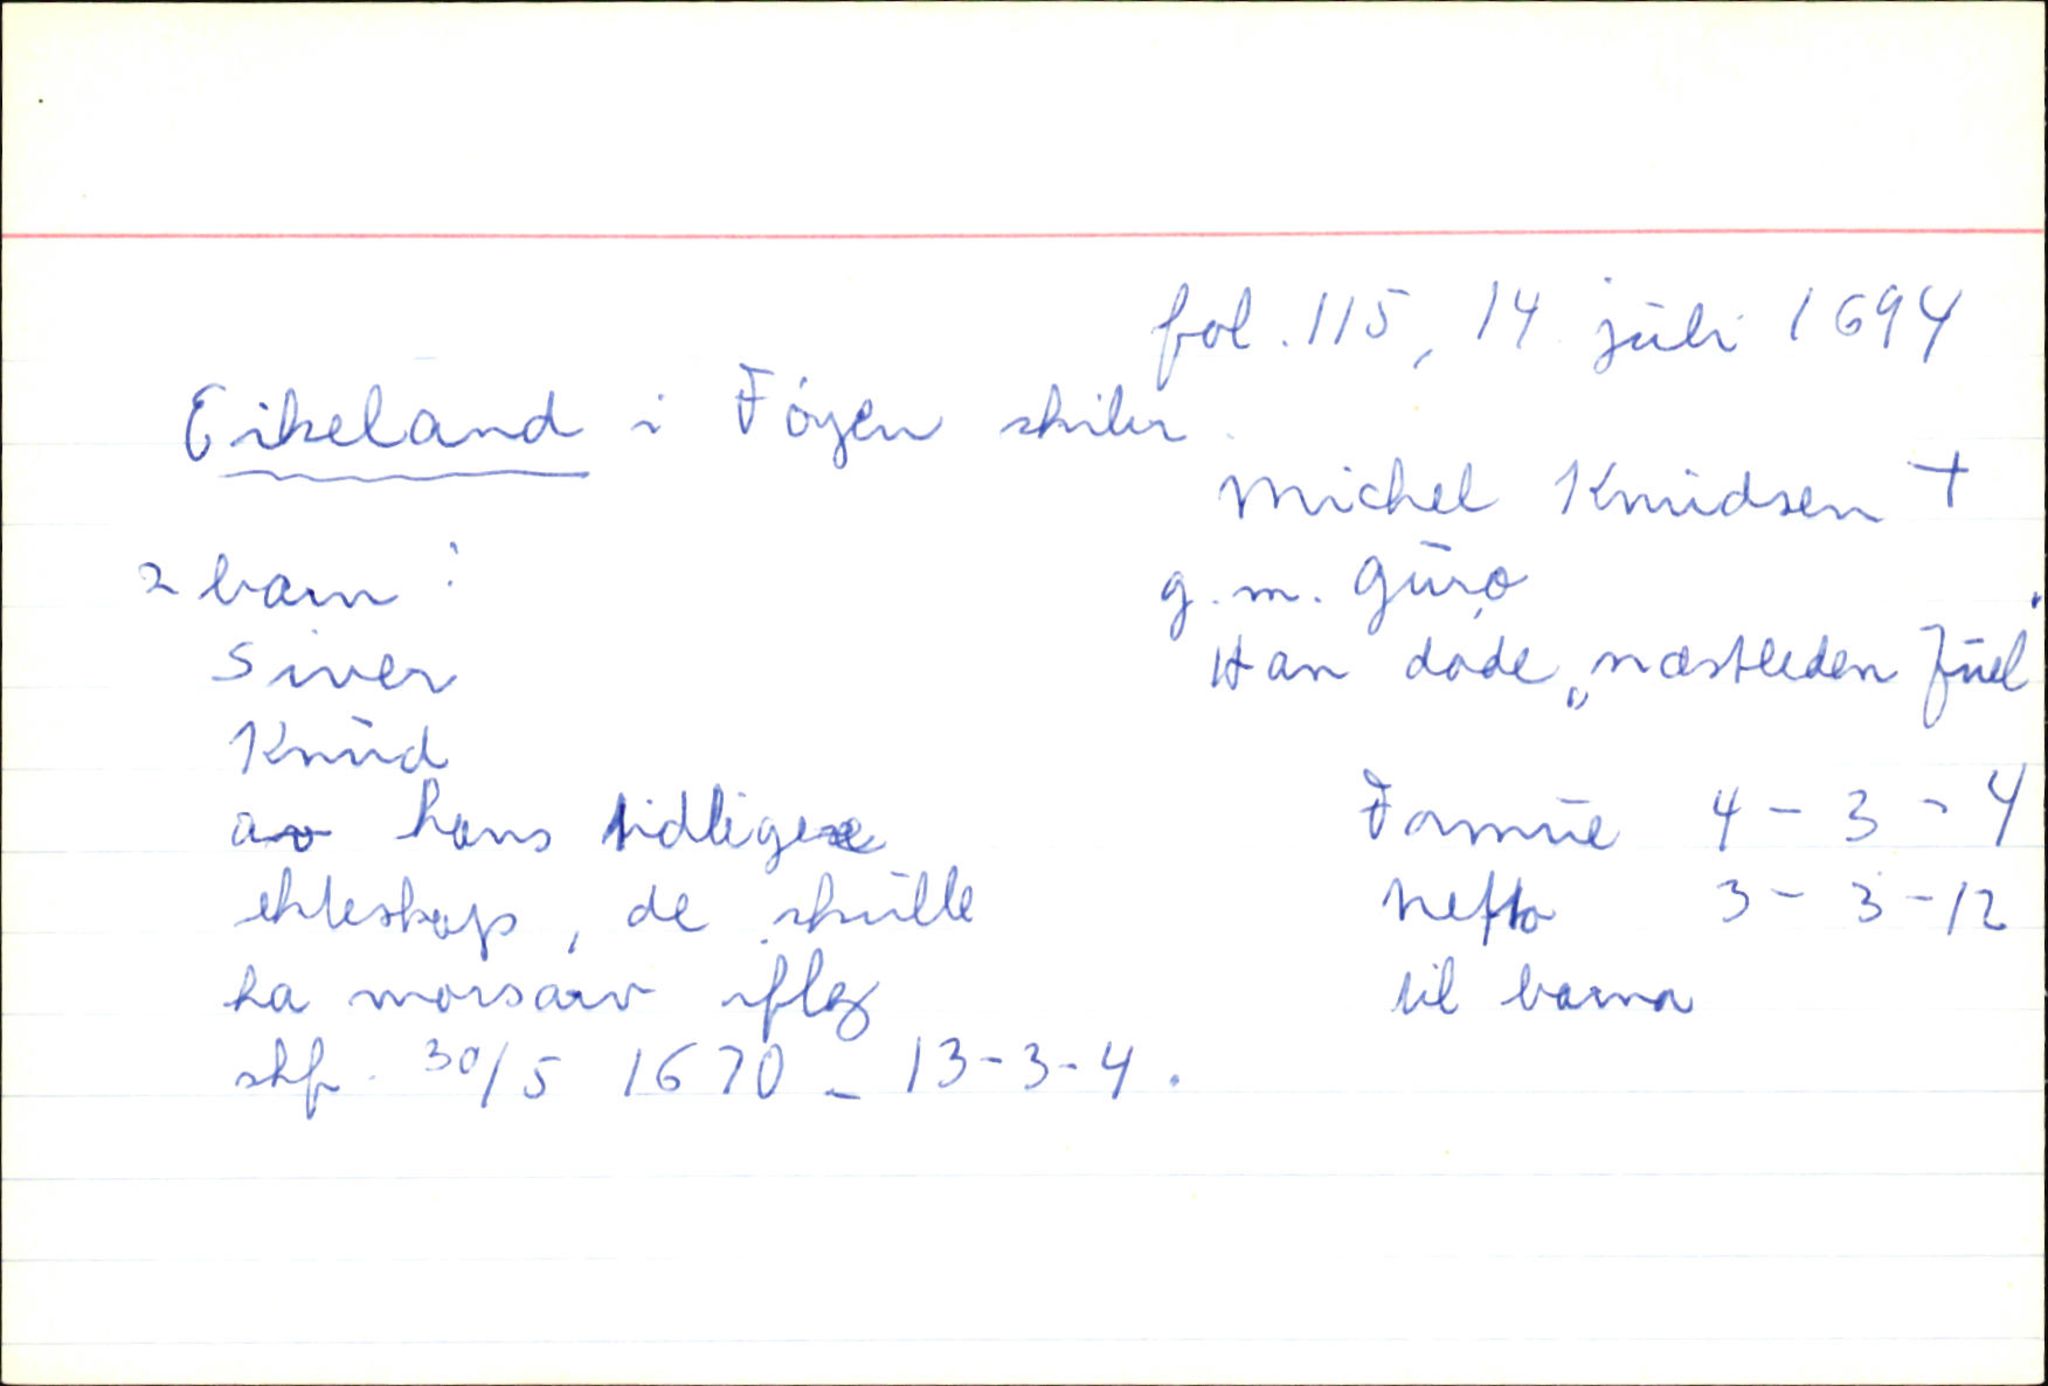 fol. 115, 14 juli 1694
Eikeland i Føyen skiber
Michel Knudsen +
g. m. Guro
Han døde „næstleden Juel"
2 barn:
Siver
Knud
av hans tidligere
ekteskap, de skulle
ha morsarv iflg
skf. 30/5 1670 - 13-3-4.
Formue 4-3-4
Netto 3-3-12
til barna